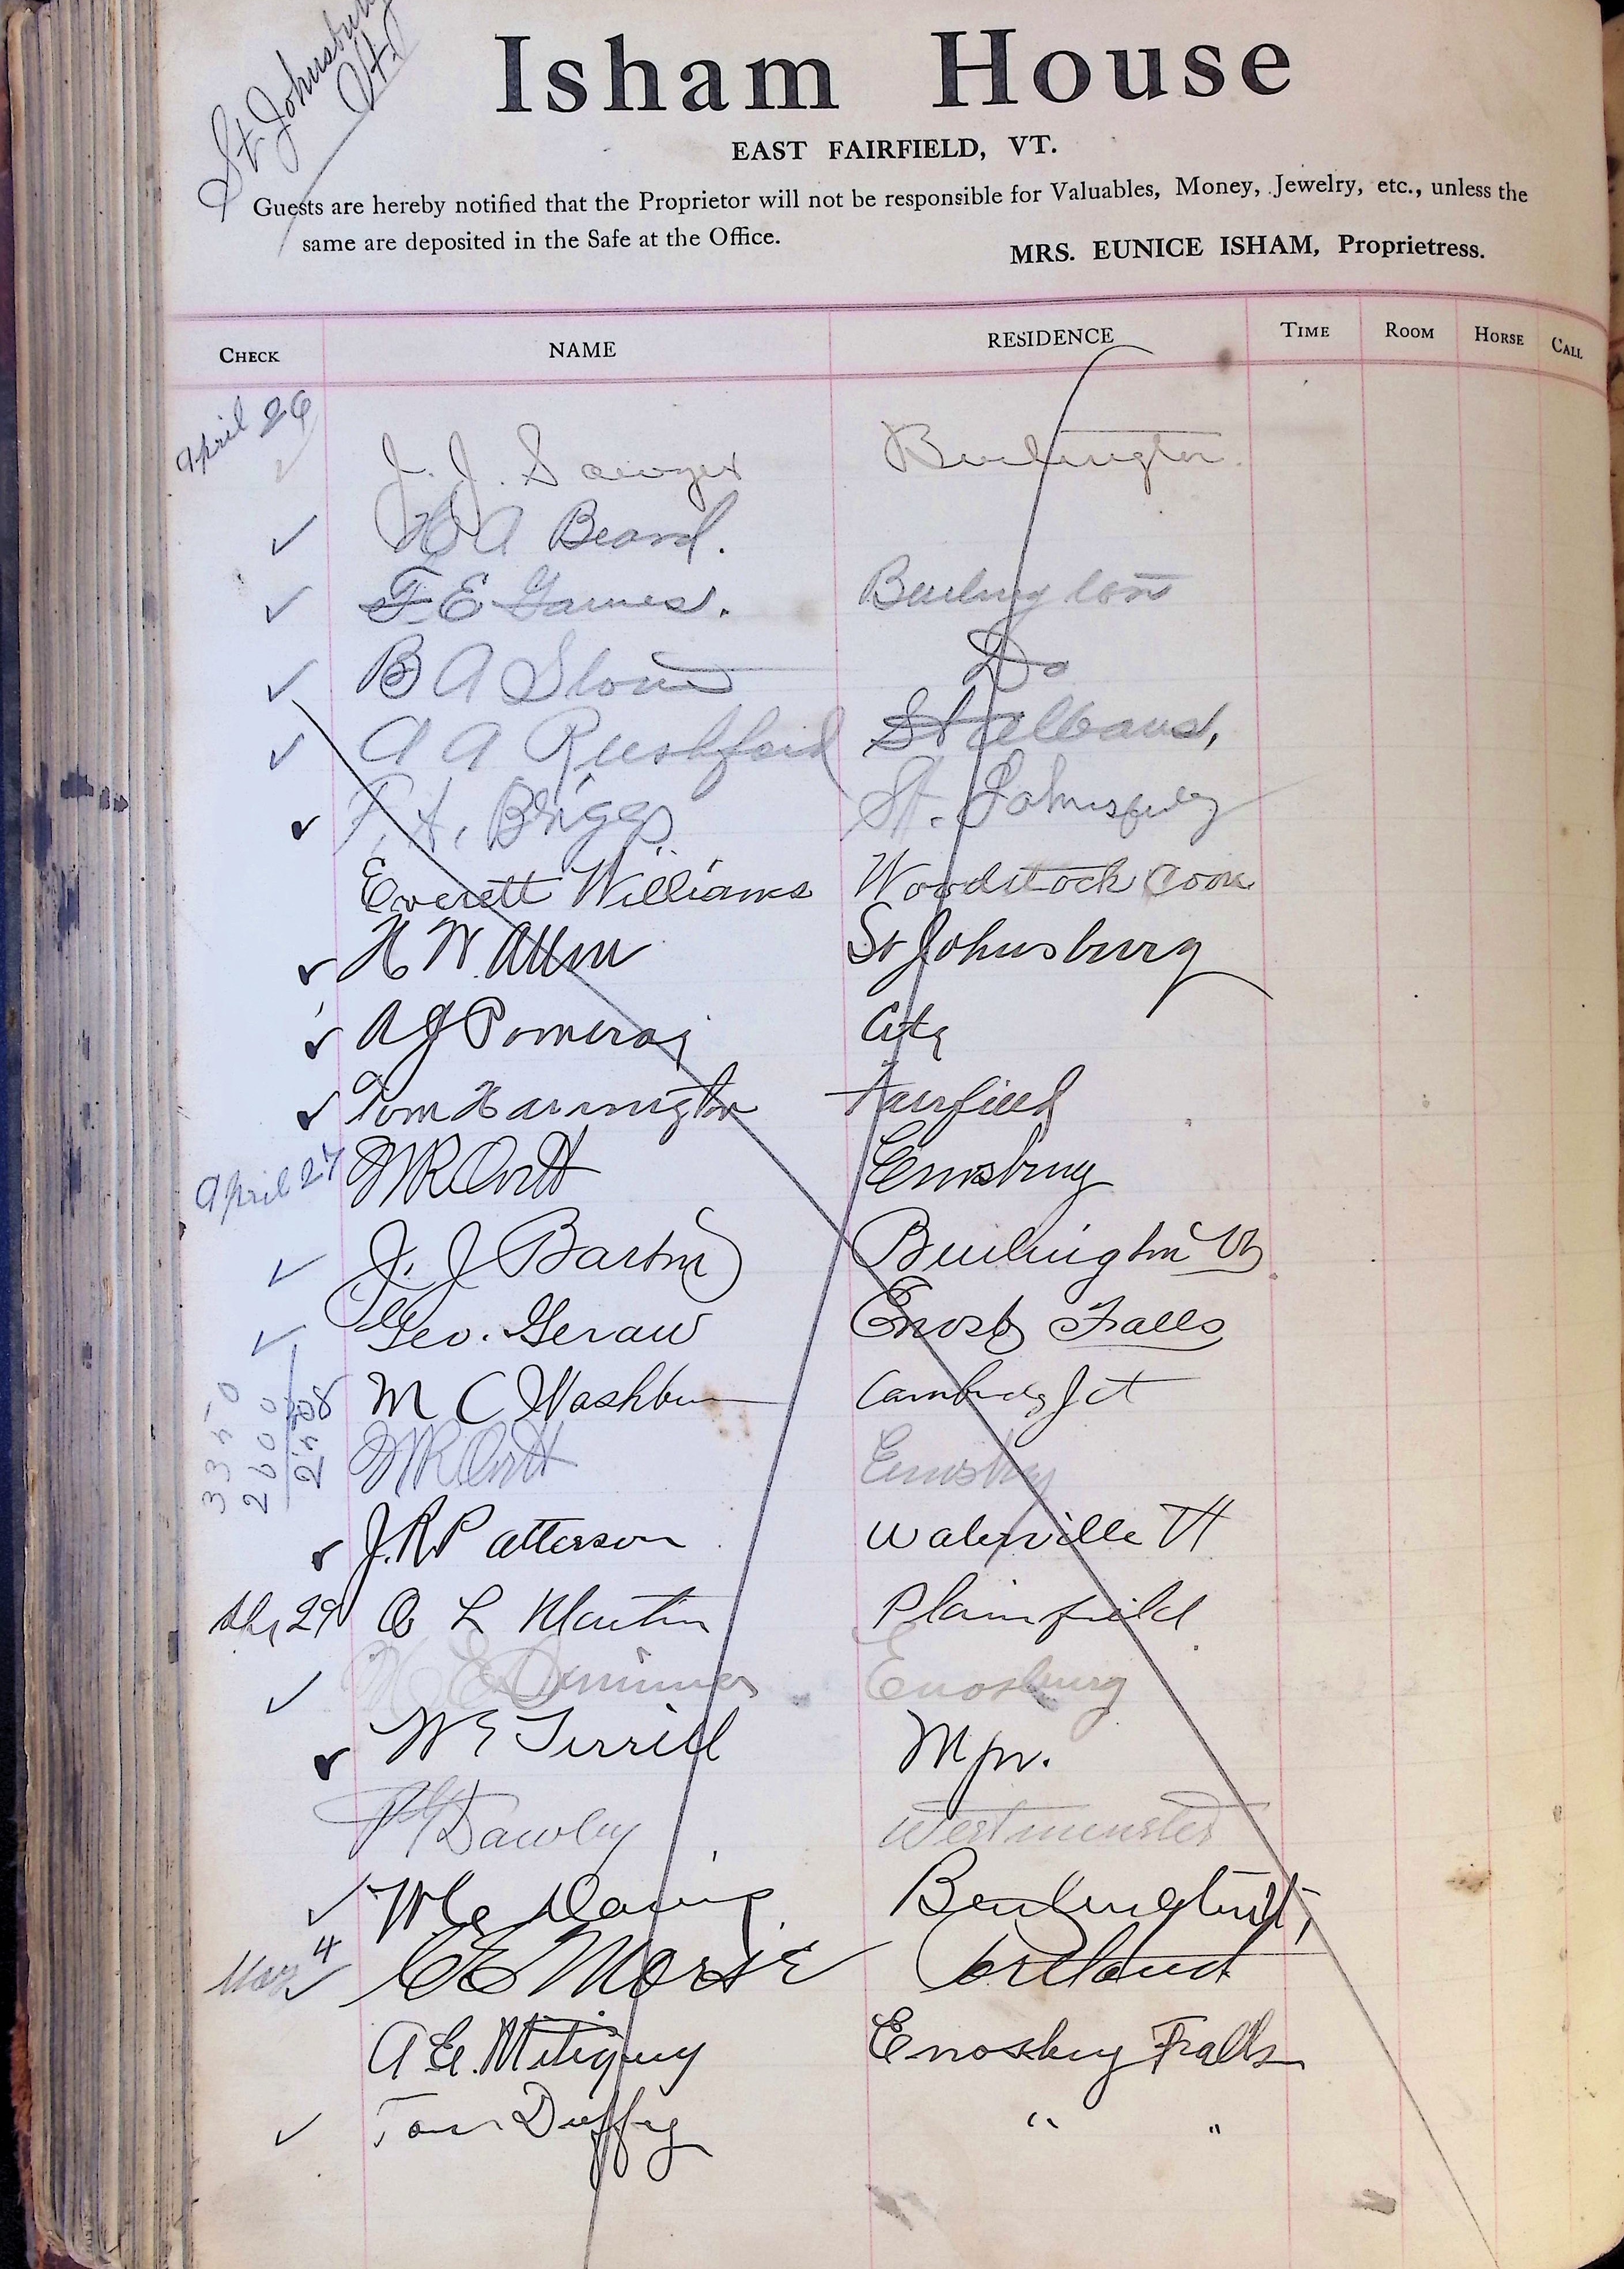 St. Johnsbury
Vt.
Isham House
EAST FAIRFIELD, VT.
Guests are hereby notified that the Proprietor will not be responsible for Valuables, Money, Jewelry, etc., unless the
same are deposited in the Safe at the Office.
MRS. EUNICE ISHAM, Proprietress.
CHECK NAME RESIDENCE TIME ROOM HORSE CALL
April 26
J. J. Sawyer Burlington.
A Beard.
F E James. Burlington
B A Stone Do
A A Rushford St Albans,
F. A. Briggs St. Johnsbury
Everett Williams Woodstock Conn
H W. Allen St Johnsbury
A J Pomeroy City
Tom Harrington Fairfield
April 27 Enosburg
J. J Barton Burlington Vt
Geo. Geraw Enosb Falls
M C Washburn Cambridg Jct
3350
2600
J. R. Patterson Waterville Vt
29 O L Martin Plainfield
Enosburg
W E Terrill Mpr.
Dawley Westminster
Davis Burlington Vt,
May 4 C E Morse Portland
A E. Mitiguy Enosburg Falls
Tom Duffy " "